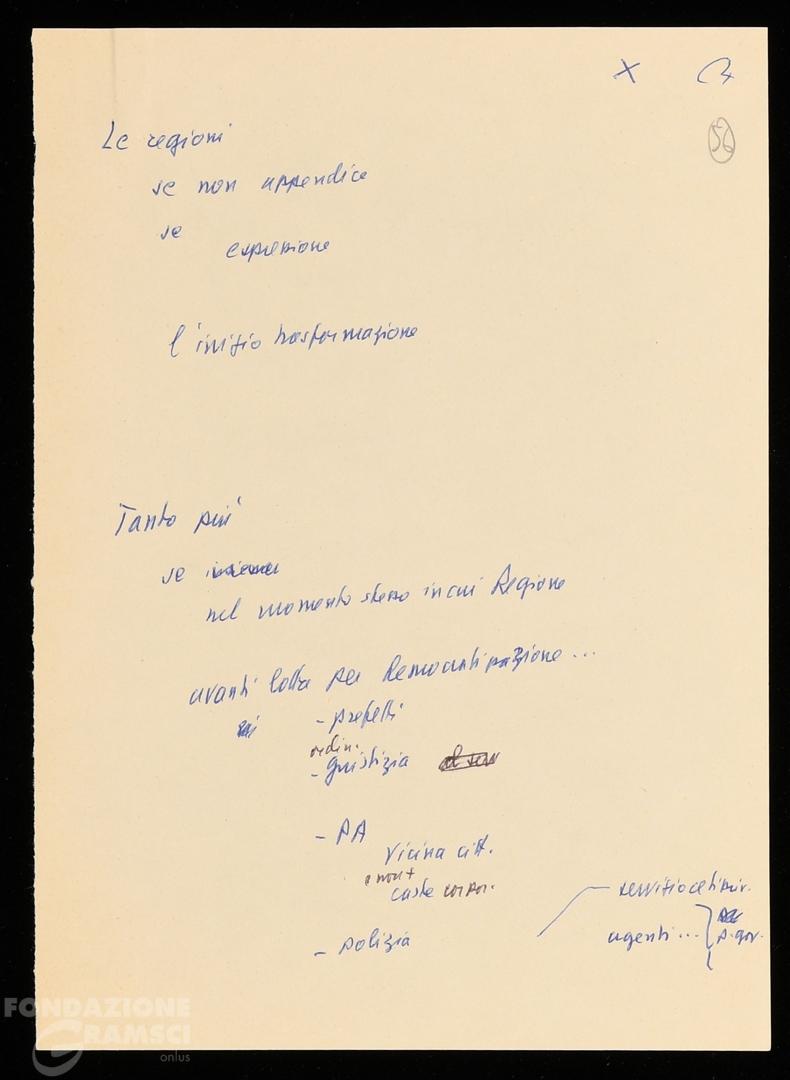 X
56
Le regioni
se non appendice
se
espressione
l'inizio trasformazione
Tanto più
se
nel momento stesso in cui Regione
avanti lotta per
- prefetti
ordin.
- giustizia
- PA
vicina citt.
e non +
caste corpor.
- polizia
servizio
agenti...
p. gov.
FONDAZIONE
GRAMSCI
onlus